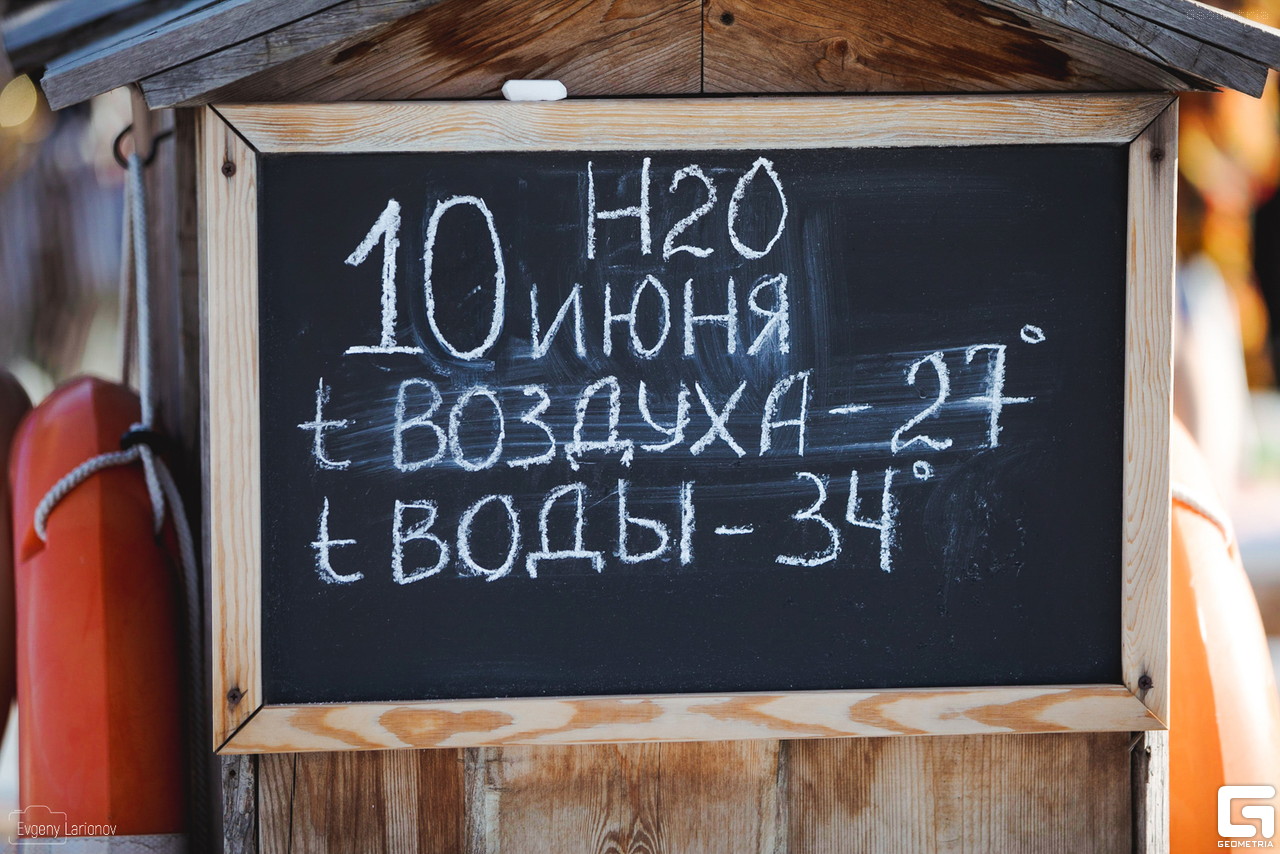 H2O
10 июня
t ВОЗДУХА - 27°
t ВОДЫ - 34°
Evgeny Larionov
GEOMETRIA